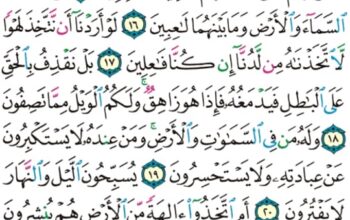 السَّمَآءَ وَالْأَرْضَ وَمَا بَيْنَهُمَا لَٰعِبِينَ ١٦ لَوْ أَرَدْنَآ أَن نَّتَّخِذَ لَهْوًا
لَّٱتَّخَذْنَٰهُ مِن لَّدُنَّآ إِن كُنَّا فَٰعِلِينَ ١٧ بَلْ نَقْذِفُ بِٱلْحَقِّ
عَلَى ٱلْبَٰطِلِ فَيَدْمَغُهُۥ فَإِذَا هُوَ زَاهِقٌ ۚ وَلَكُمُ ٱلْوَيْلُ مِمَّا تَصِفُونَ
١٨ وَلَهُۥ مَن فِى ٱلسَّمَٰوَٰتِ وَٱلْأَرْضِ ۚ وَمَنْ عِندَهُۥ لَا يَسْتَكْبِرُونَ
عَنْ عِبَادَتِهِۦ وَلَا يَسْتَحْسِرُونَ ١٩ يُسَبِّحُونَ ٱلَّيْلَ وَٱلنَّهَارَ
لَا يَفْتُرُونَ ٢٠ أَمِ ٱتَّخَذُوٓا۟ ءَالِهَةً مِّنَ ٱلْأَرْضِ هُمْ يُنشِرُونَ